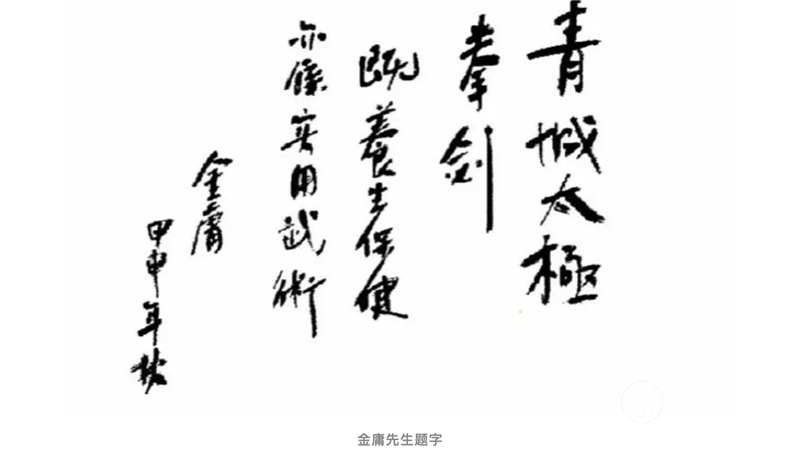 青城太極
拳剑
既養生保健
亦係实用武術
金庸
甲申年秋
金庸先生题字